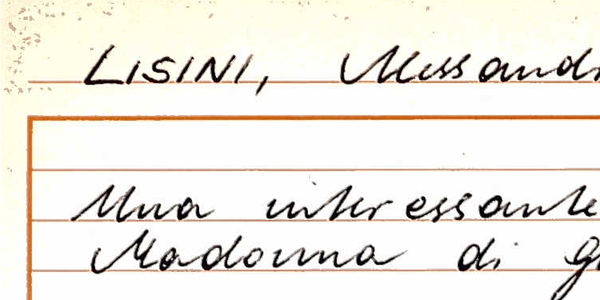 LISINI, Alessand
Una interessante
Madonna di g